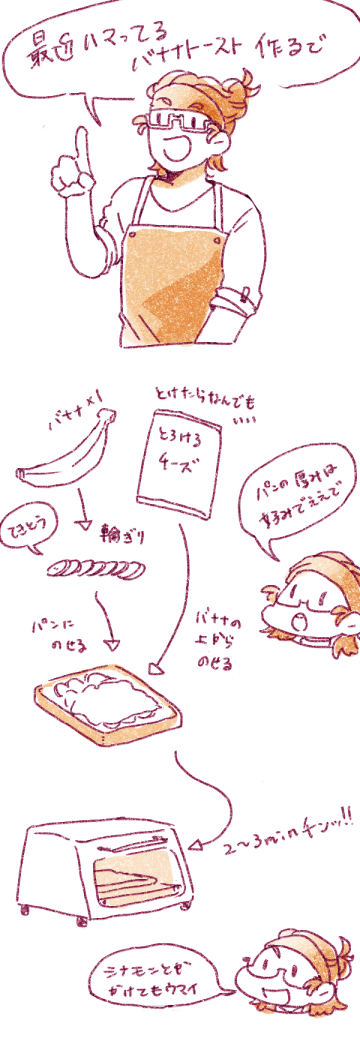 最近ハマってる
バナナトースト 作るで
バナナ×1
とけたらなんでも
いい
とろける
チーズ
パンの厚みは
好みでええで
てきとう
輪ぎり
パンに
のせる
バナナの
上から
のせる
2〜3minチンッ!!
シナモンとか
かけてもウマイ